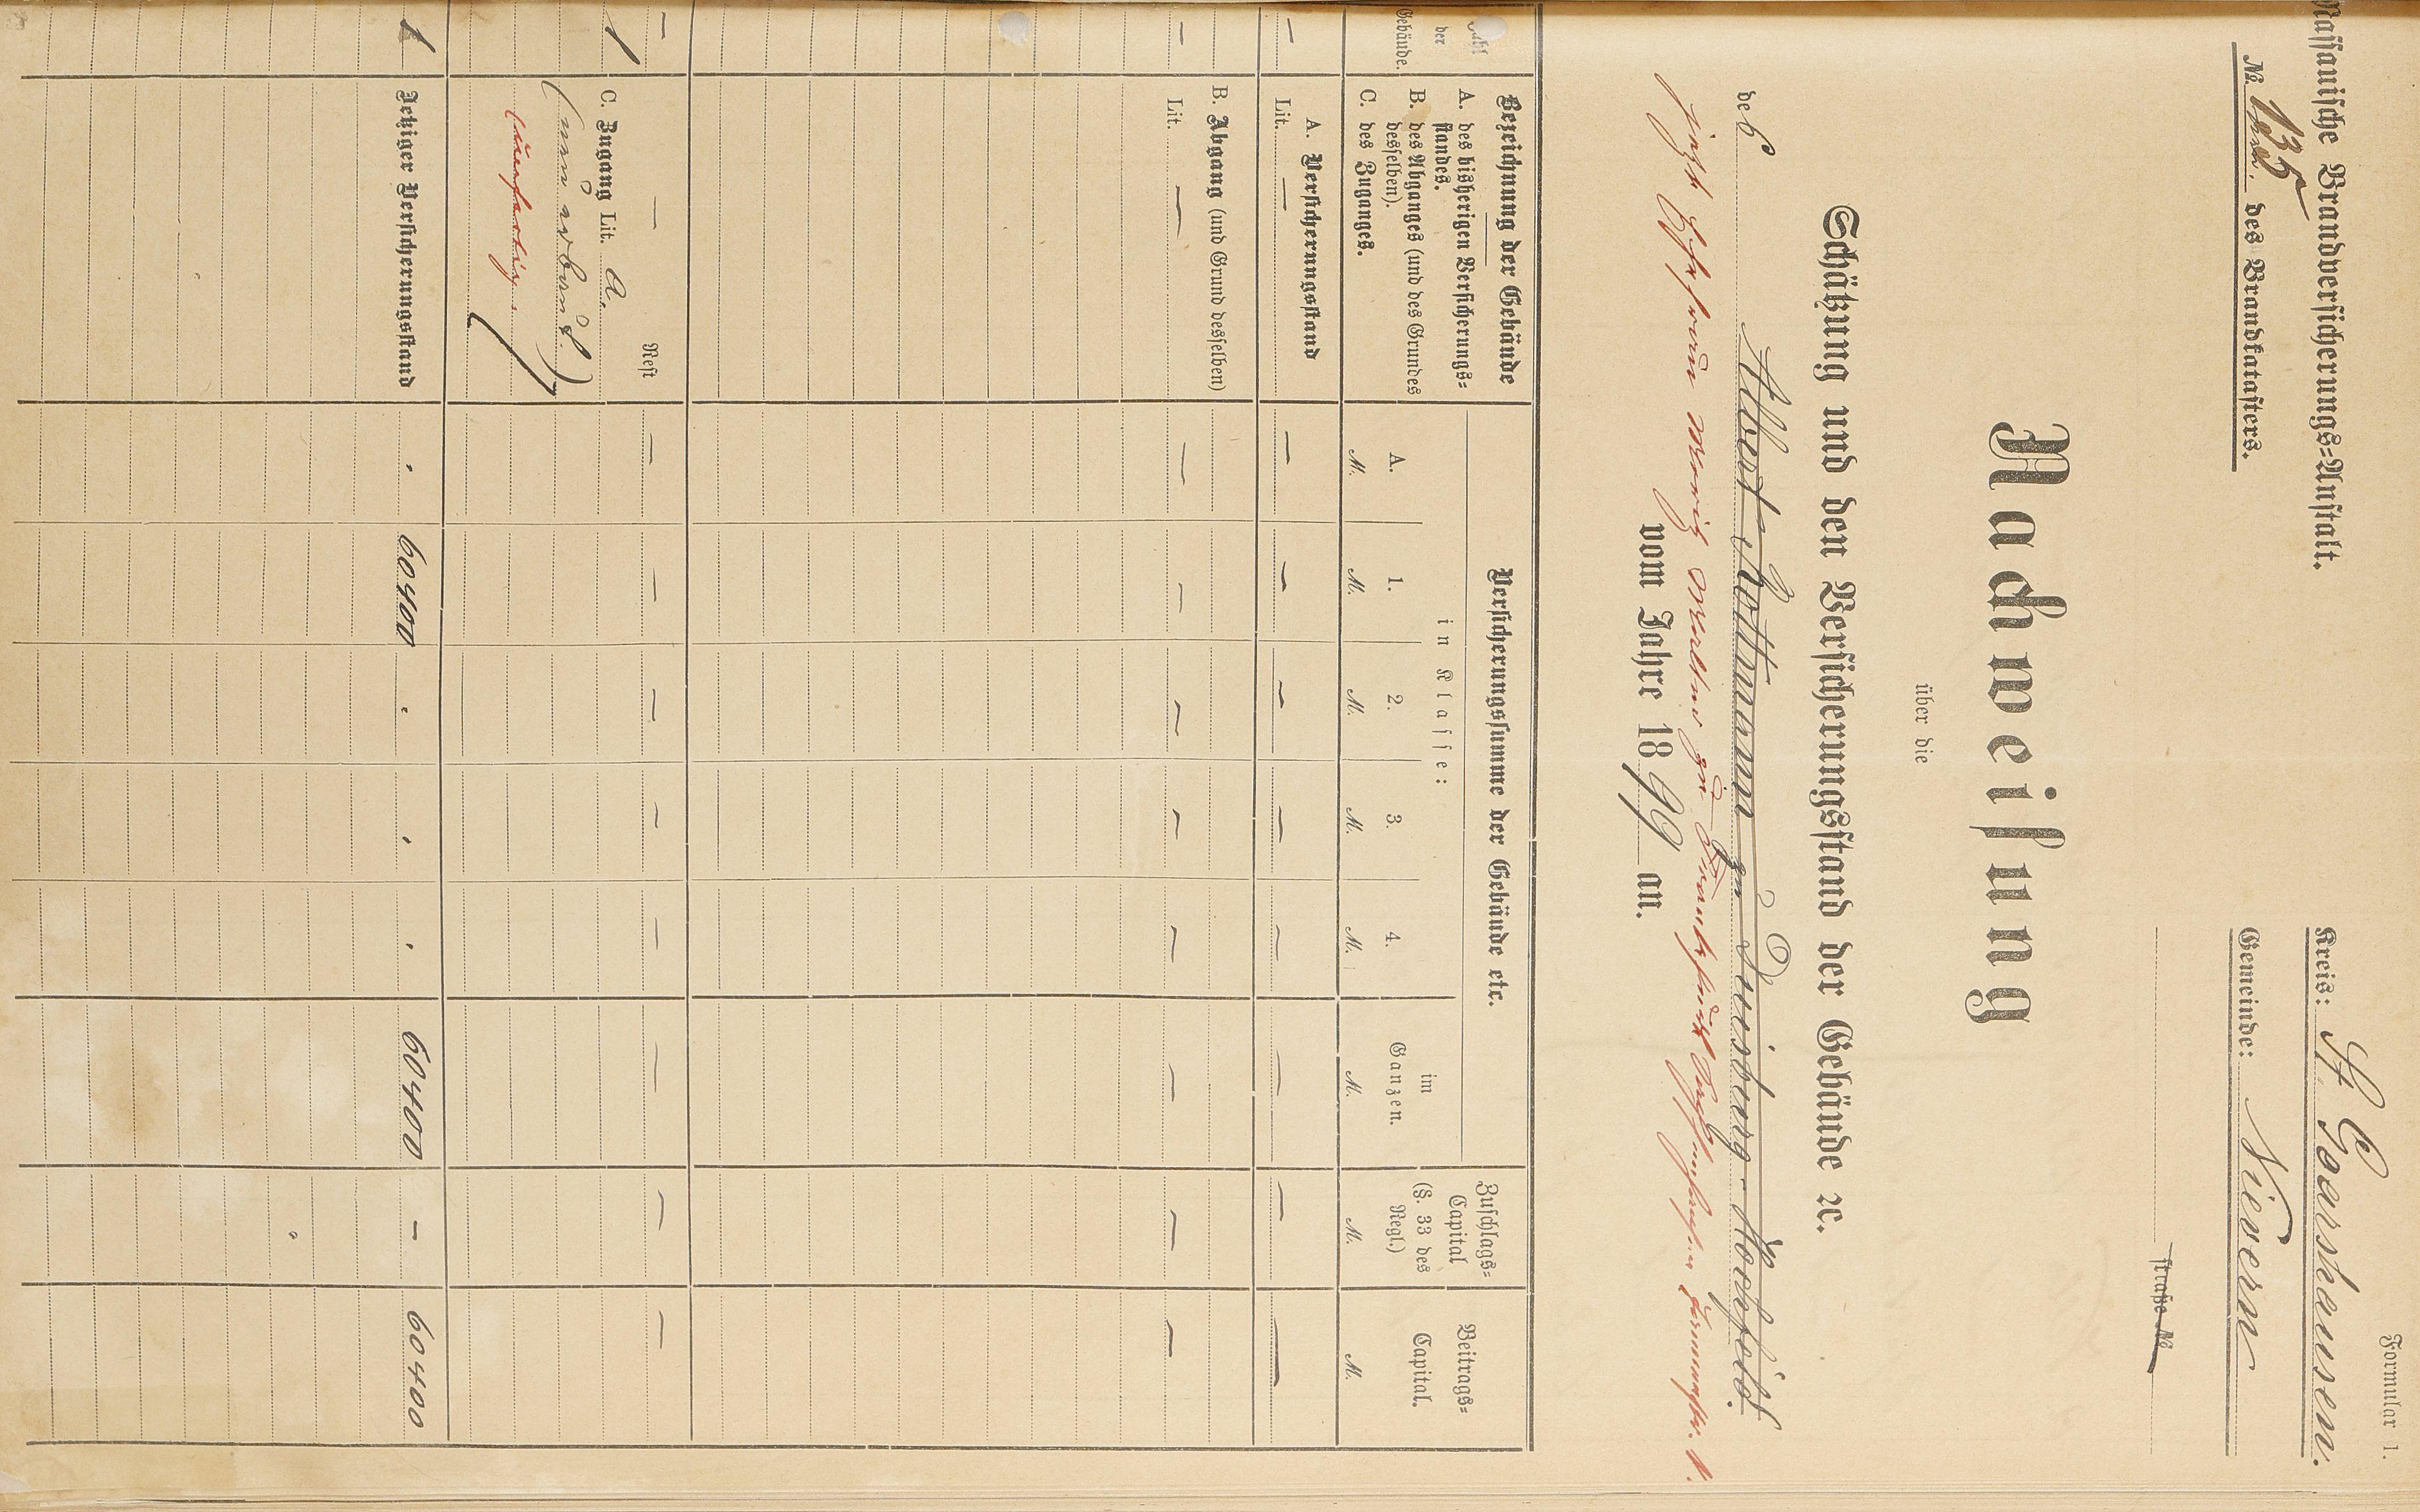 Formular 1.
Nassauische Brandversicherungs-Anstalt.
Kreis: St. Goarshausen.
№ 135 des Brandkatasters.
Gemeinde: Nievern
straße №
Nachweisung
über die
Schätzung und den Versicherungsstand der Gebäude ꝛc.
des Albert Rottmann zu Duisburg-Hochfeld.
jetzt Ehefrau Moritz zu Frankfurt
vom Jahre 1899 an.
Zahl der Gebäude.
Bezeichnung der Gebäude
A. des bisherigen Versicherungs-
standes.
B. des Abganges (und des Grundes
desselben).
C. des Zuganges.
Versicherungssumme der Gebäude etc.
in Klasse:
A. 1. 2. 3. 4.
im Ganzen.
Zuschlags-Capital (§. 33 des Regl.)
Beitrags-Capital.
M. M. M. M. M. M. M. M.
A. Versicherungsstand
— Lit. — — — — — — — — —
B. Abgang (und Grund desselben)
— Lit. — — — — — — — — —
— — Rest — — — — — — — —
1 C. Zugang Lit. a.
(neu erbaut.)
1 Jetziger Versicherungsstand . 60400 . . . 60400 — 60400